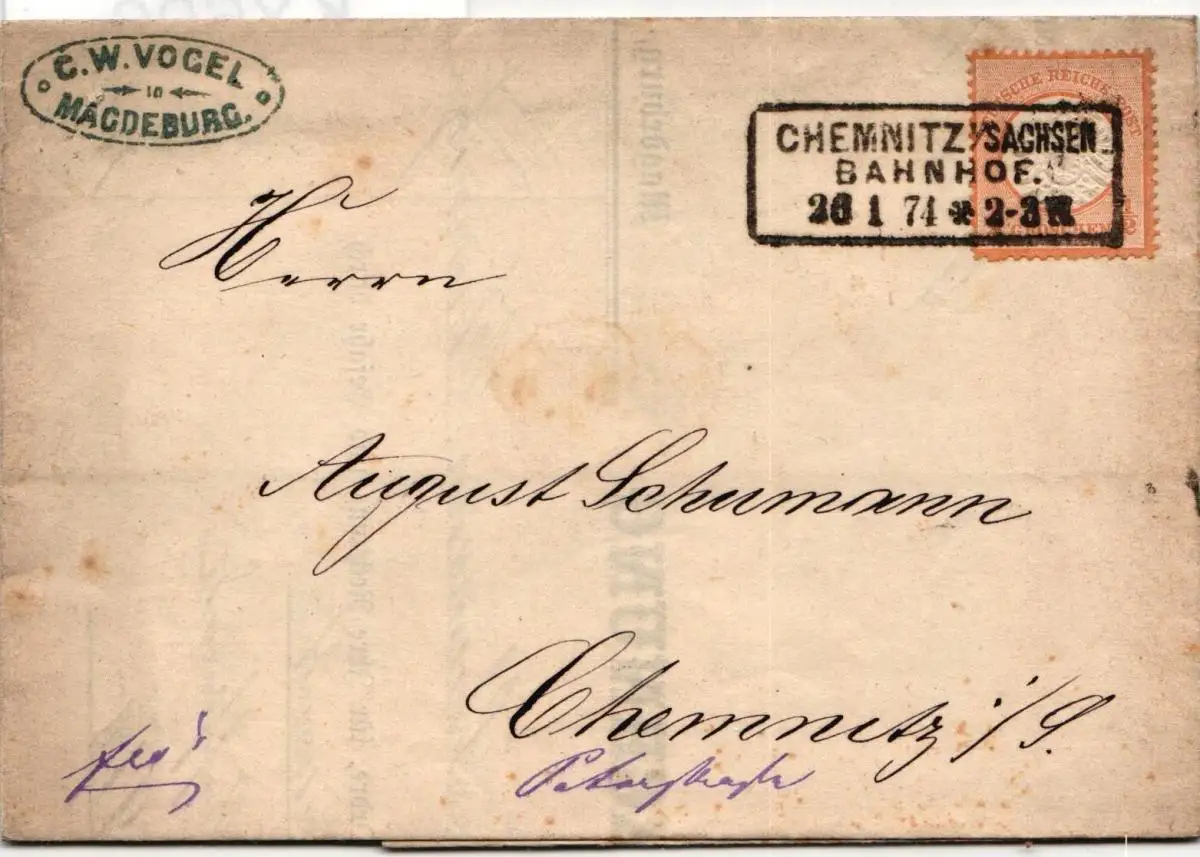 C. W. VOGEL
in
MAGDEBURG.
CHEMNITZ/SACHSEN
BAHNHOF.
26 1 74 * 2-3 N.
Herrn
August Schumann
Chemnitz i/S.